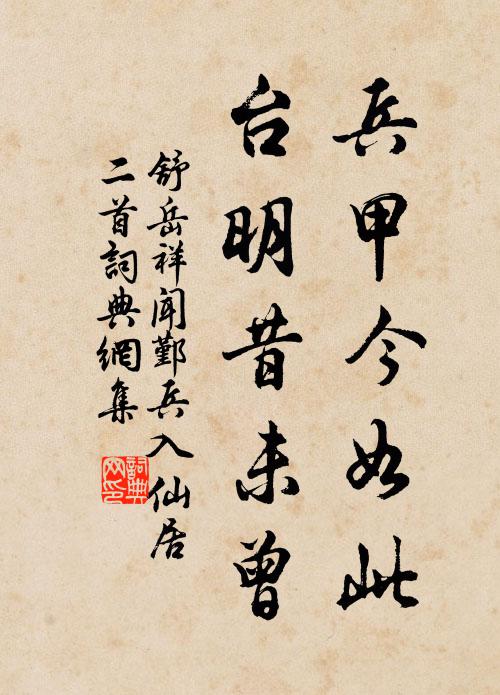 兵甲今如此
台明昔未曾
舒岳祥闻鄞兵入仙居
二首詞典網集
詞典
网印